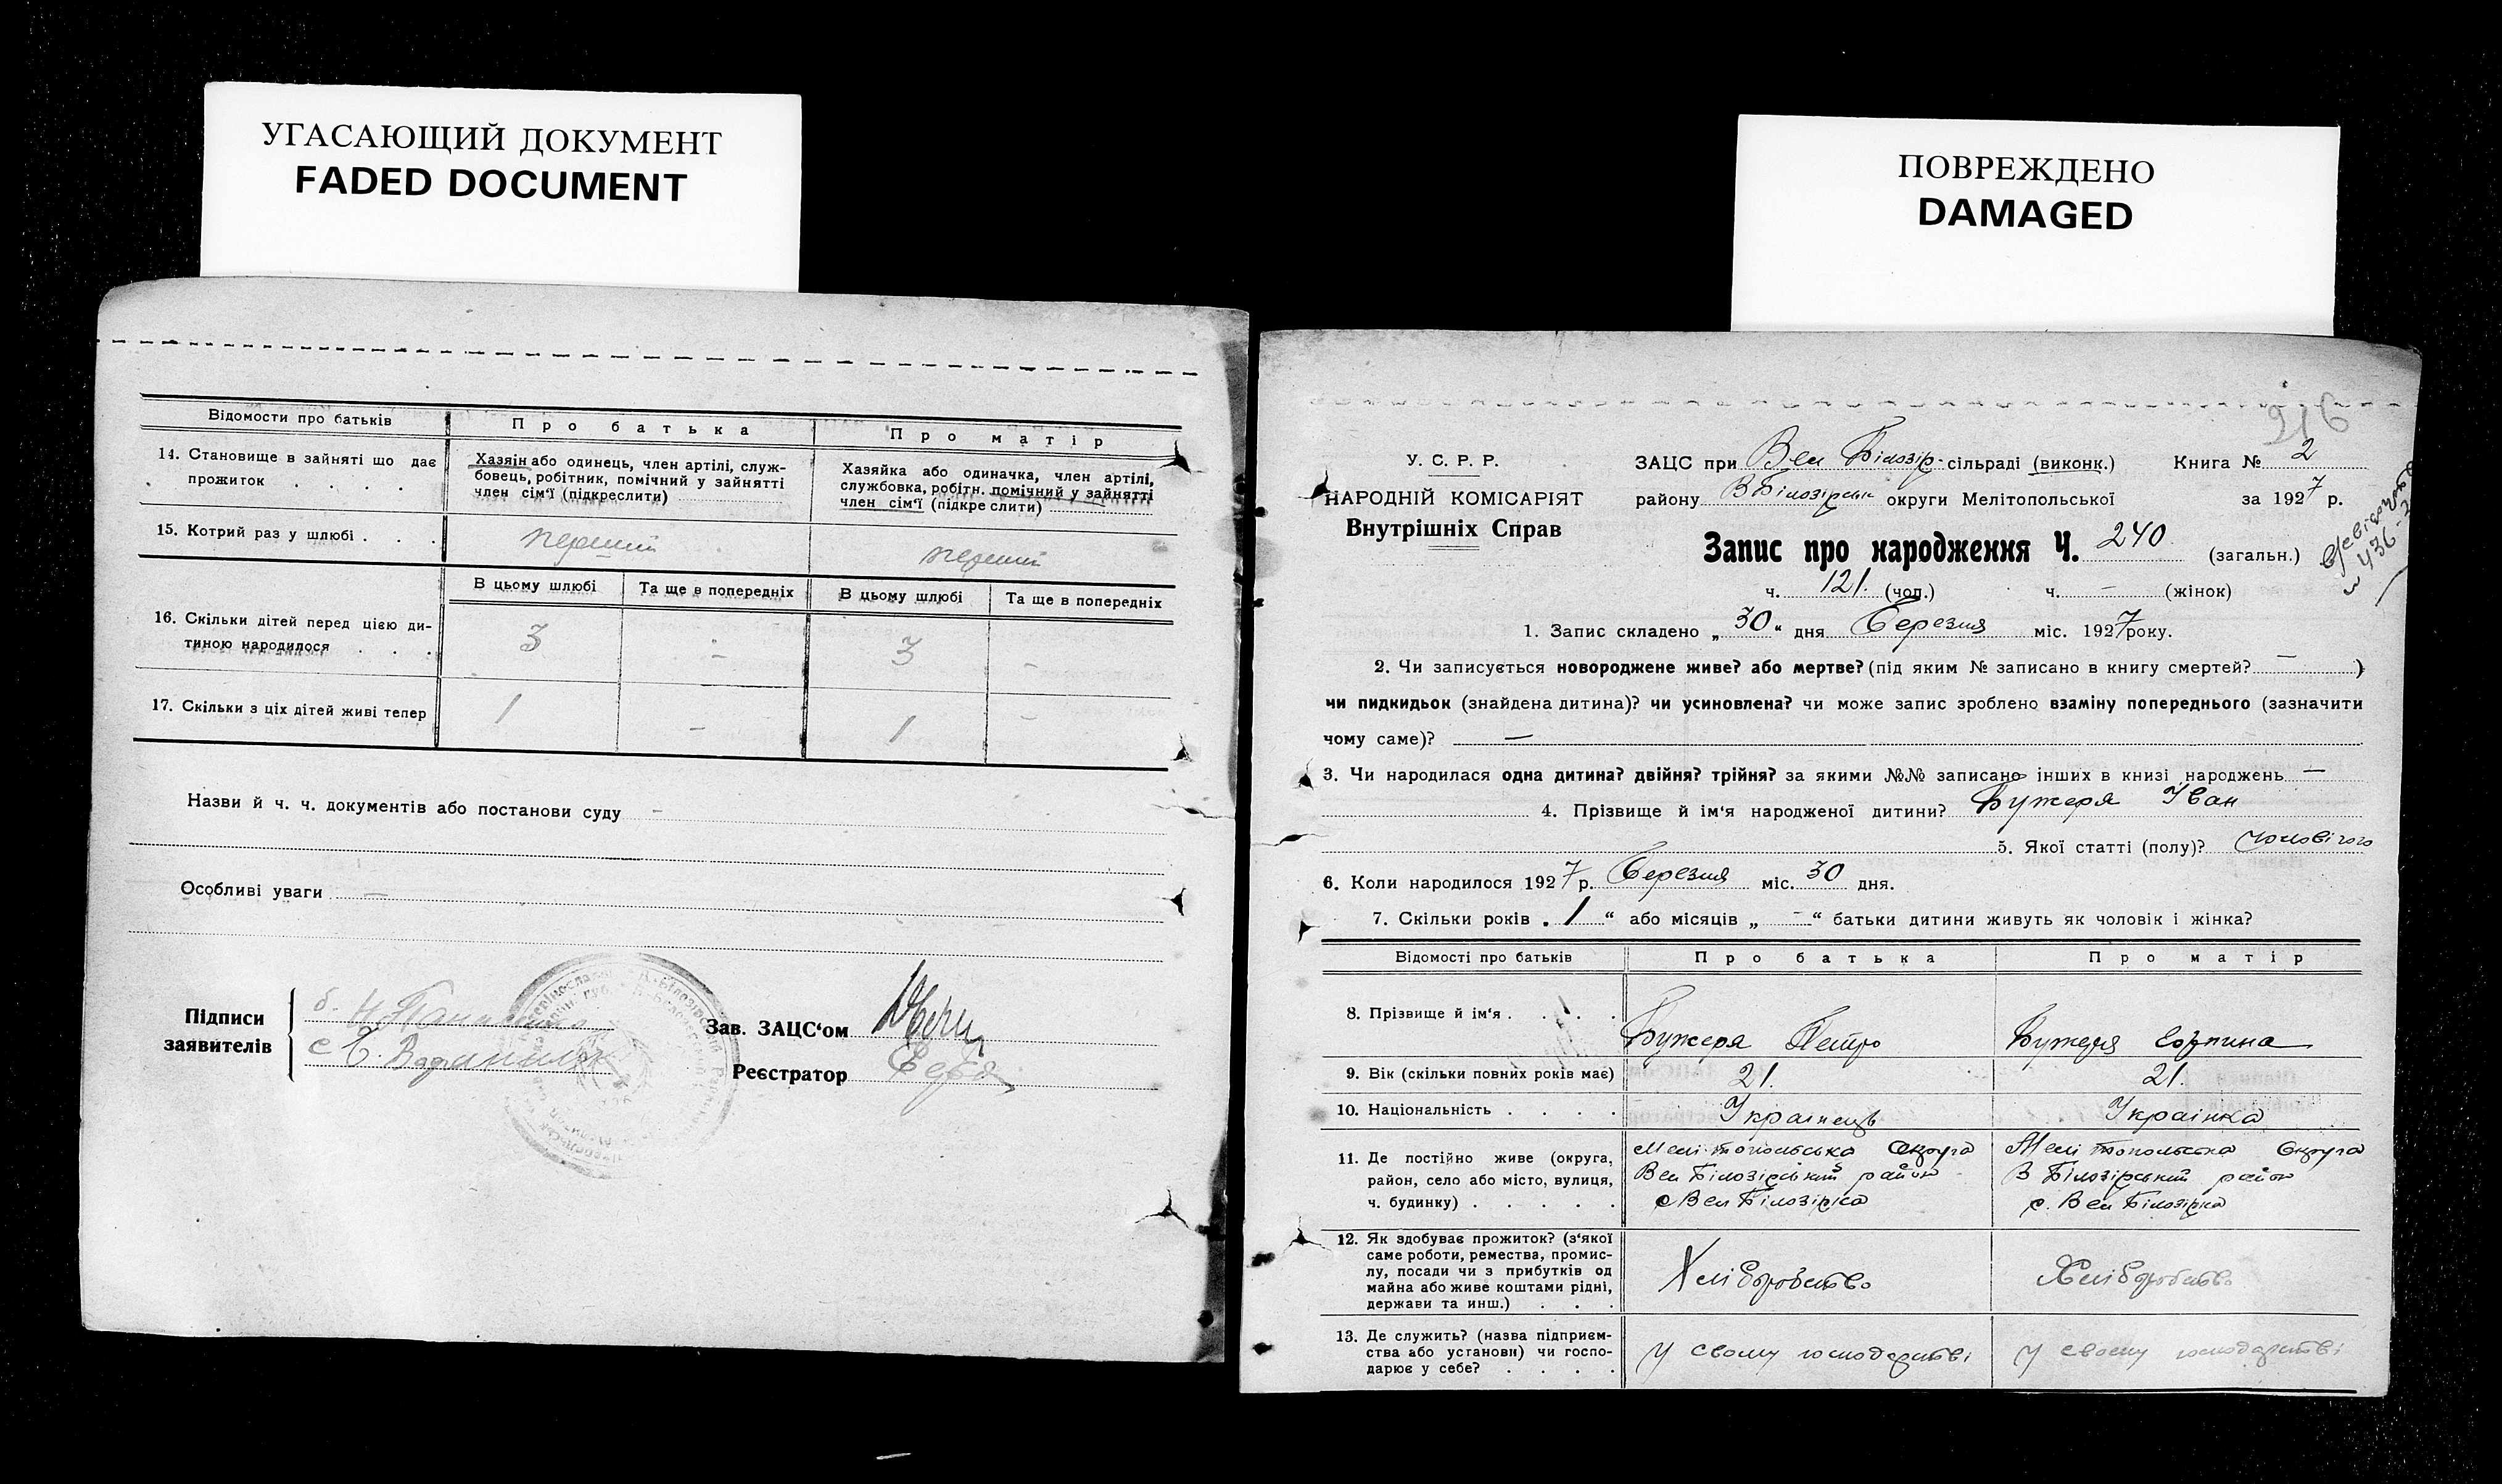 УГАСАЮЩИЙ ДОКУМЕНТ
FADED DOCUMENT
Відомости про батьків
Про батька
Про матір
14. Становище в зайняті що дає
прожиток . . . .
Хазяїн або одинець, член артілі, служ-
бовець, робітник, помічний у зайнятті
член сім'ї (підкреслити)
Хазяйка або одиначка, член артілі,
службовка, робітн. помічний у зайнятті
член сім'ї (підкреслити)
15. Котрий раз у шлюбі . . .
перший
перший
В цьому шлюбі
Та ще в попередніх
В цьому шлюбі
Та ще в попередніх
16. Скільки дітей перед цією ди-
тиною народилося . . .
3
-
3
-
17. Скільки з ціх дітей живі тепер
1
-
1
-
Назви й ч. ч. документів або постанови суду -
Особливі уваги —
Підписи
заявителів
Зав. ЗАЦС'ом
Реєстратор
ПОВРЕЖДЕНО
DAMAGED
216
У. С. Р. Р.
НАРОДНІЙ КОМІСАРІЯТ
Внутрішніх Справ
ЗАЦС при Вел Білозір- сільраді (виконк.) Книга № 2
району В Білозірськ округи Мелітопольської за 1927 р.
Запис про народження Ч. 240 (загальн.)
ч. 121. (чол.) ч. — (жінок)
1. Запис складено „ 30 “ дня Березня міс. 1927 року.
2. Чи записується новороджене живе? або мертве? (під яким № записано в книгу смертей? — )
чи пидкидьок (знайдена дитина)? чи усиновлена? чи може запис зроблено взаміну попереднього (зазначити
чому саме)? —
3. Чи народилася одна дитина? двійня? трійня? за якими №№ записано інших в книзі народжень —
4. Прізвище й ім'я народженої дитини? Бужеря Іван
5. Якої статті (полу)? Чоловічого
6. Коли народилося 1927 р. Березня міс. 30 дня.
7. Скільки років „ 1 “ або місяців „ - “ батьки дитини живуть як чоловік і жінка?
Відомості про батьків
Про батька
Про матір
8. Прізвище й ім'я . . . .
Бужеря Петро
Бужеря
9. Вік (скільки повних років має)
21.
21.
10. Національність . . . .
Українець
Українка
11. Де постійно живе (округа,
район, село або місто, вулиця,
ч. будинку) . . . . .
Мелітопольська Округа
Вел Білозірський район
с Вел Білозірка
Мелітопольська Округа
В Білозірський район
с. Вел Білозірка
12. Як здобуває прожиток? (з'якої
саме роботи, ремества, промис-
лу, посади чи з прибутків од
майна або живе коштами рідні,
держави та инш.) . . .
Хліборобство
Хліборобство
13. Де служить? (назва підприєм-
ства або установи) чи госпо-
дарює у себе? . . . .
У свому господарстві
У своєму господарстві